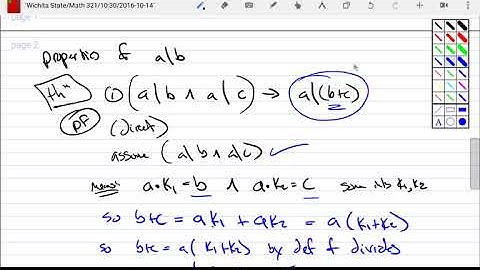 "Wichita State/Math 321/10:30/2016-10-14"
page
page 2
properties of a|b
thm ① (a|b ∧ a|c) → a|(b+c)
pf (direct)
assume (a|b ∧ a|c) ✓
means a•k₁ = b ∧ a•k₂ = c some ints k₁, k₂
so b+c = ak₁ + ak₂ = a(k₁+k₂)
so b+c = a(k₁+k₂) by def of divides